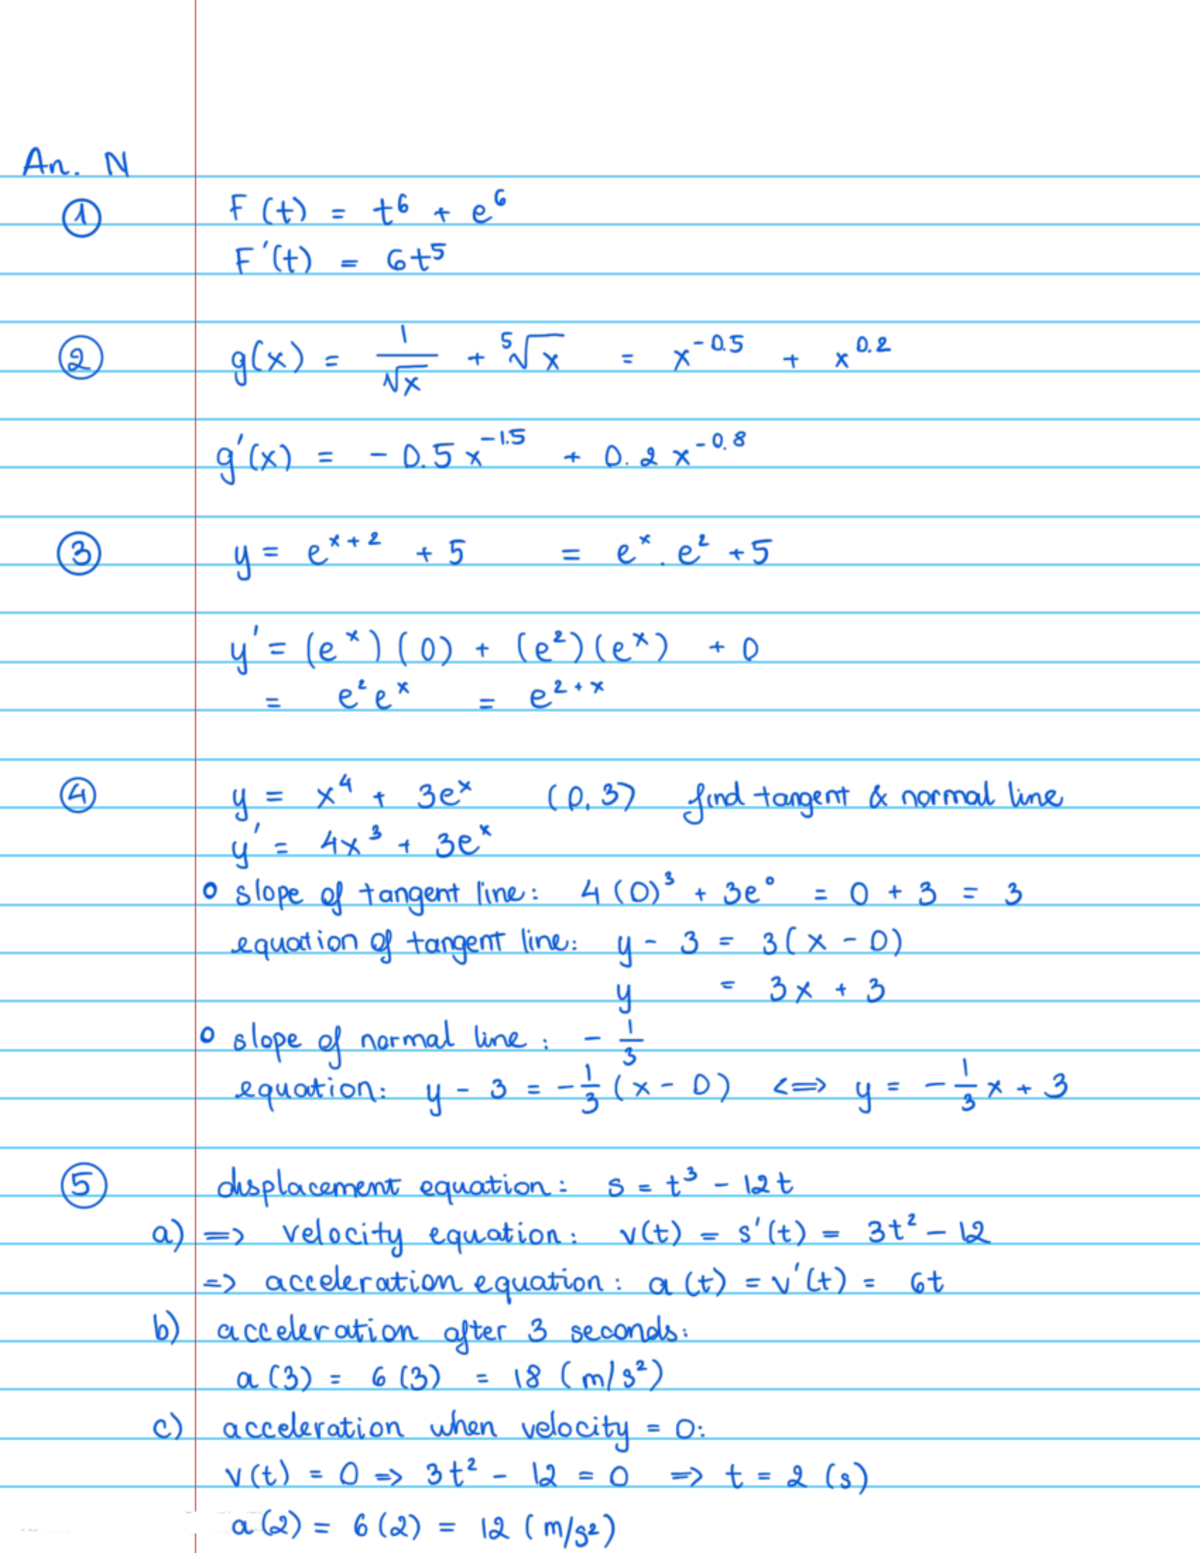 An. N
① F(t) = t⁶ + e⁶
F'(t) = 6t⁵
② g(x) = 1/√x + ⁵√x = x^-0.5 + x^0.2
g'(x) = - 0.5 x^-1.5 + 0.2 x^-0.8
③ y = e^x+2 + 5 = e^x . e² + 5
y' = (e^x)(0) + (e²)(e^x) + 0
= e² e^x = e^2+x
④ y = x⁴ + 3e^x (0, 3) find tangent & normal line
y' = 4x³ + 3e^x
o slope of tangent line: 4(0)³ + 3e⁰ = 0 + 3 = 3
equation of tangent line: y - 3 = 3(x - 0)
y = 3x + 3
o slope of normal line: - 1/3
equation: y - 3 = -1/3 (x - 0) <=> y = -1/3 x + 3
⑤ displacement equation: s = t³ - 12t
a) => velocity equation: v(t) = s'(t) = 3t² - 12
=> acceleration equation: a(t) = v'(t) = 6t
b) acceleration after 3 seconds:
a(3) = 6(3) = 18 (m/s²)
c) acceleration when velocity = 0:
v(t) = 0 => 3t² - 12 = 0 => t = 2 (s)
a(2) = 6(2) = 12 (m/s²)